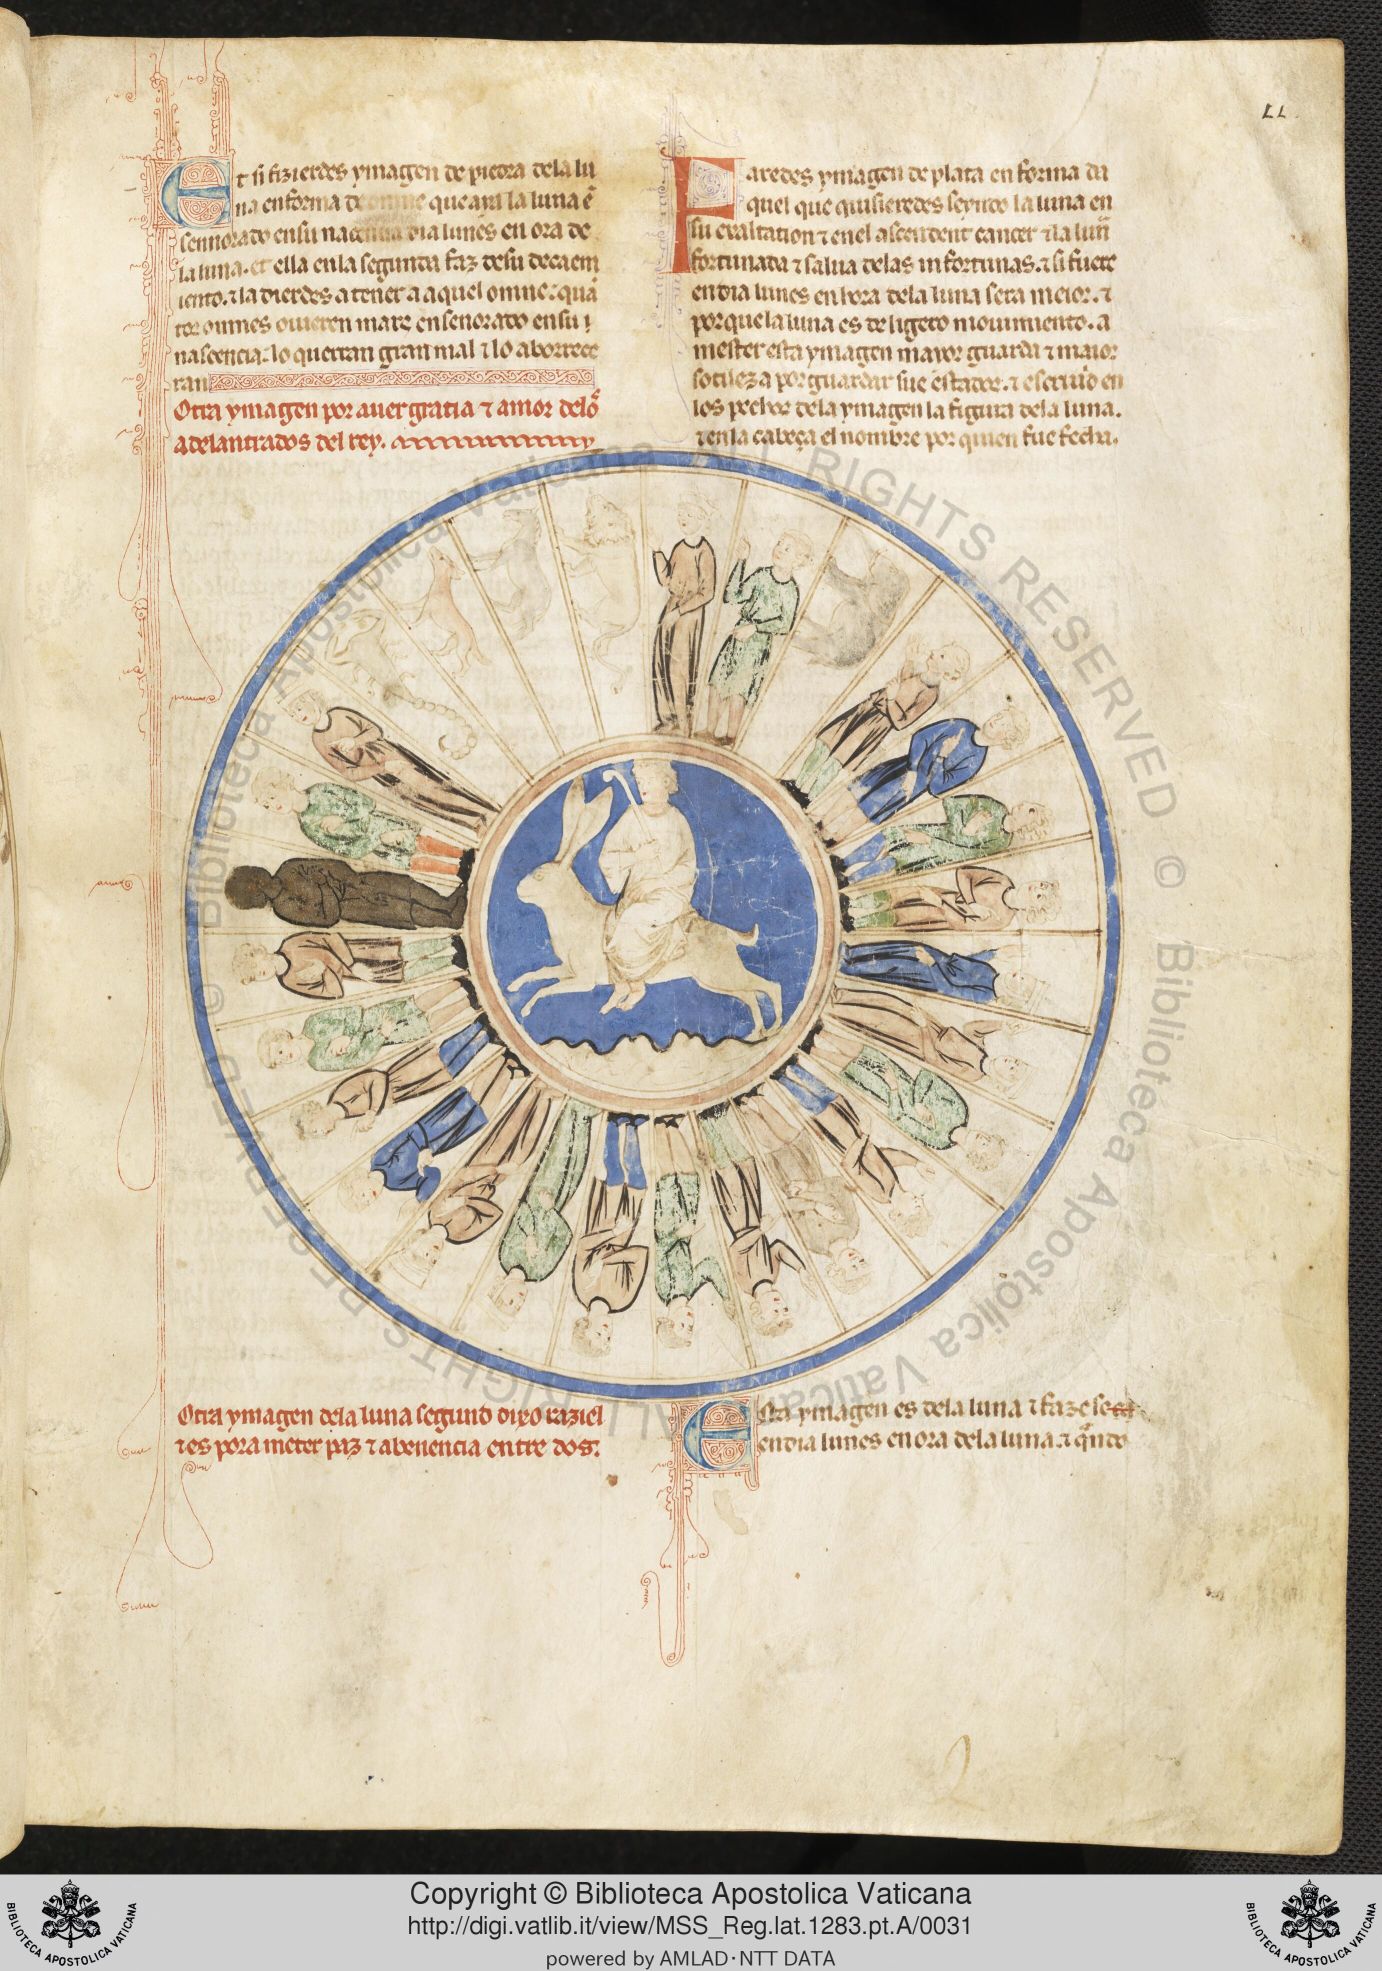 LL
Et si fizierdes ymagen de piedra dela lu
na en forma de omne que aya la luna e͂
sennorado en su nacencia dia lunes en ora de
la luna. et ella en la segunda faz de su decaem
iento. ⁊ la dierdes a tener a aquel omne: quã
tos oumes ouieren mars ensenorado en su
nascencia: lo querran gran mal ⁊ lo aborrece
ran
Otra ymagen por auer gratia ⁊ amor delo᷉
adelantrados del rey.
Faredes ymagen de plata en forma da
quel que quisieredes seyendo la luna en
su exaltation ⁊ en el ascendent cancer ⁊ la lun̄
fortunada ⁊ salua delas infortunas. ⁊ si fuere
en dia lunes en hora dela luna sera meior. ⁊
por que la luna es de ligero mouimiento. a
mester esta ymagen mayor guarda ⁊ maior
sotileza por guardar sue estador. ⁊ escriuid en
los pechos dela ymagen la figura dela luna.
⁊ en la cabeça el nombre por quien fue fecha.
Otra ymagen dela luna segund dixo raziel
⁊ es pora meter paz ⁊ abenencia entre dos:
Esta ymagen es dela luna ⁊ faze se
en dia lunes en ora dela luna. ⁊ q̃ndo
© Biblioteca Apostolica Vaticana ALL RIGHTS RESERVED © Biblioteca Apostolica Vaticana ALL RIGHTS RESERVED
BIBLIOTECA APOSTOLICA VATICANA
Copyright © Biblioteca Apostolica Vaticana
http://digi.vatlib.it/view/MSS_Reg.lat.1283.pt.A/0031
powered by AMLAD·NTT DATA
BIBLIOTECA APOSTOLICA VATICANA